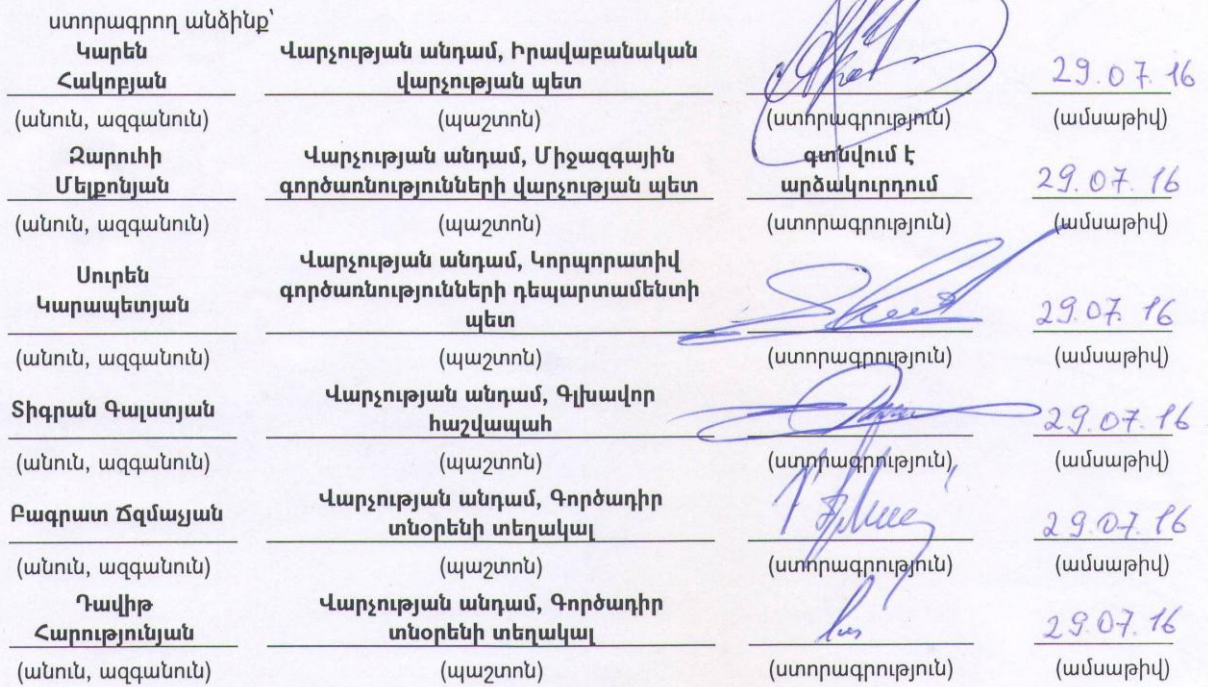 ստորագրող անձինք՝
Կարեն Հակոբյան
Վարչության անդամ, Իրավաբանական վարչության պետ
29.07.16
(անուն, ազգանուն) (պաշտոն) (ստորագրություն) (ամսաթիվ)
Զարուհի Մելքոնյան
Վարչության անդամ, Միջազգային գործառնությունների վարչության պետ
գտնվում է արձակուրդում
29.07.16
(անուն, ազգանուն) (պաշտոն) (ստորագրություն) (ամսաթիվ)
Սուրեն Կարապետյան
Վարչության անդամ, Կորպորատիվ գործառնությունների դեպարտամենտի պետ
29.07.16
(անուն, ազգանուն) (պաշտոն) (ստորագրություն) (ամսաթիվ)
Տիգրան Գալստյան
Վարչության անդամ, Գլխավոր հաշվապահ
29.07.16
(անուն, ազգանուն) (պաշտոն) (ստորագրություն) (ամսաթիվ)
Բագրատ Ճզմաչյան
Վարչության անդամ, Գործադիր տնօրենի տեղակալ
29.07.16
(անուն, ազգանուն) (պաշտոն) (ստորագրություն) (ամսաթիվ)
Դավիթ Հարությունյան
Վարչության անդամ, Գործադիր տնօրենի տեղակալ
29.07.16
(անուն, ազգանուն) (պաշտոն) (ստորագրություն) (ամսաթիվ)